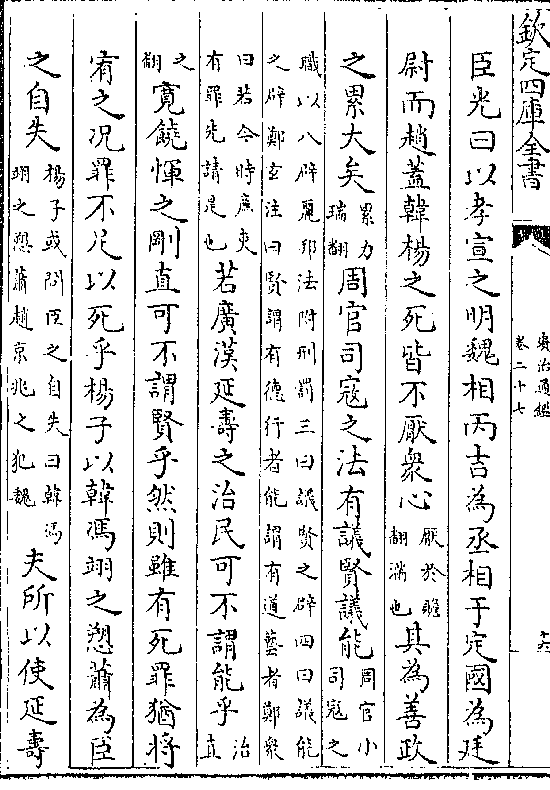 欽定四庫全書
資治通鑑
卷二十七
十六
臣光曰以孝宣之明魏相丙吉為丞相于定國為廷
尉而趙蓋韓楊之死皆不厭衆心厭於贍翻滿也其為善政
之累大矣累力瑞翻周官司寇之法有議賢議能周官小司寇之
職以八辟麗邦法附刑罰三曰議賢之辟四曰議能
之辟鄭玄注曰賢謂有德行者能謂有道藝者鄭衆
曰若今時亷吏有罪先請是也若廣漢延壽之治民可不謂能乎治直
之翻寛饒惲之剛直可不謂賢乎然則雖有死罪猶將
宥之况罪不足以死乎楊子以韓馮翊之愬蕭為臣
之自失楊子或問臣之自失曰韓馮翊之愬蕭趙京兆之犯魏夫所以使延壽